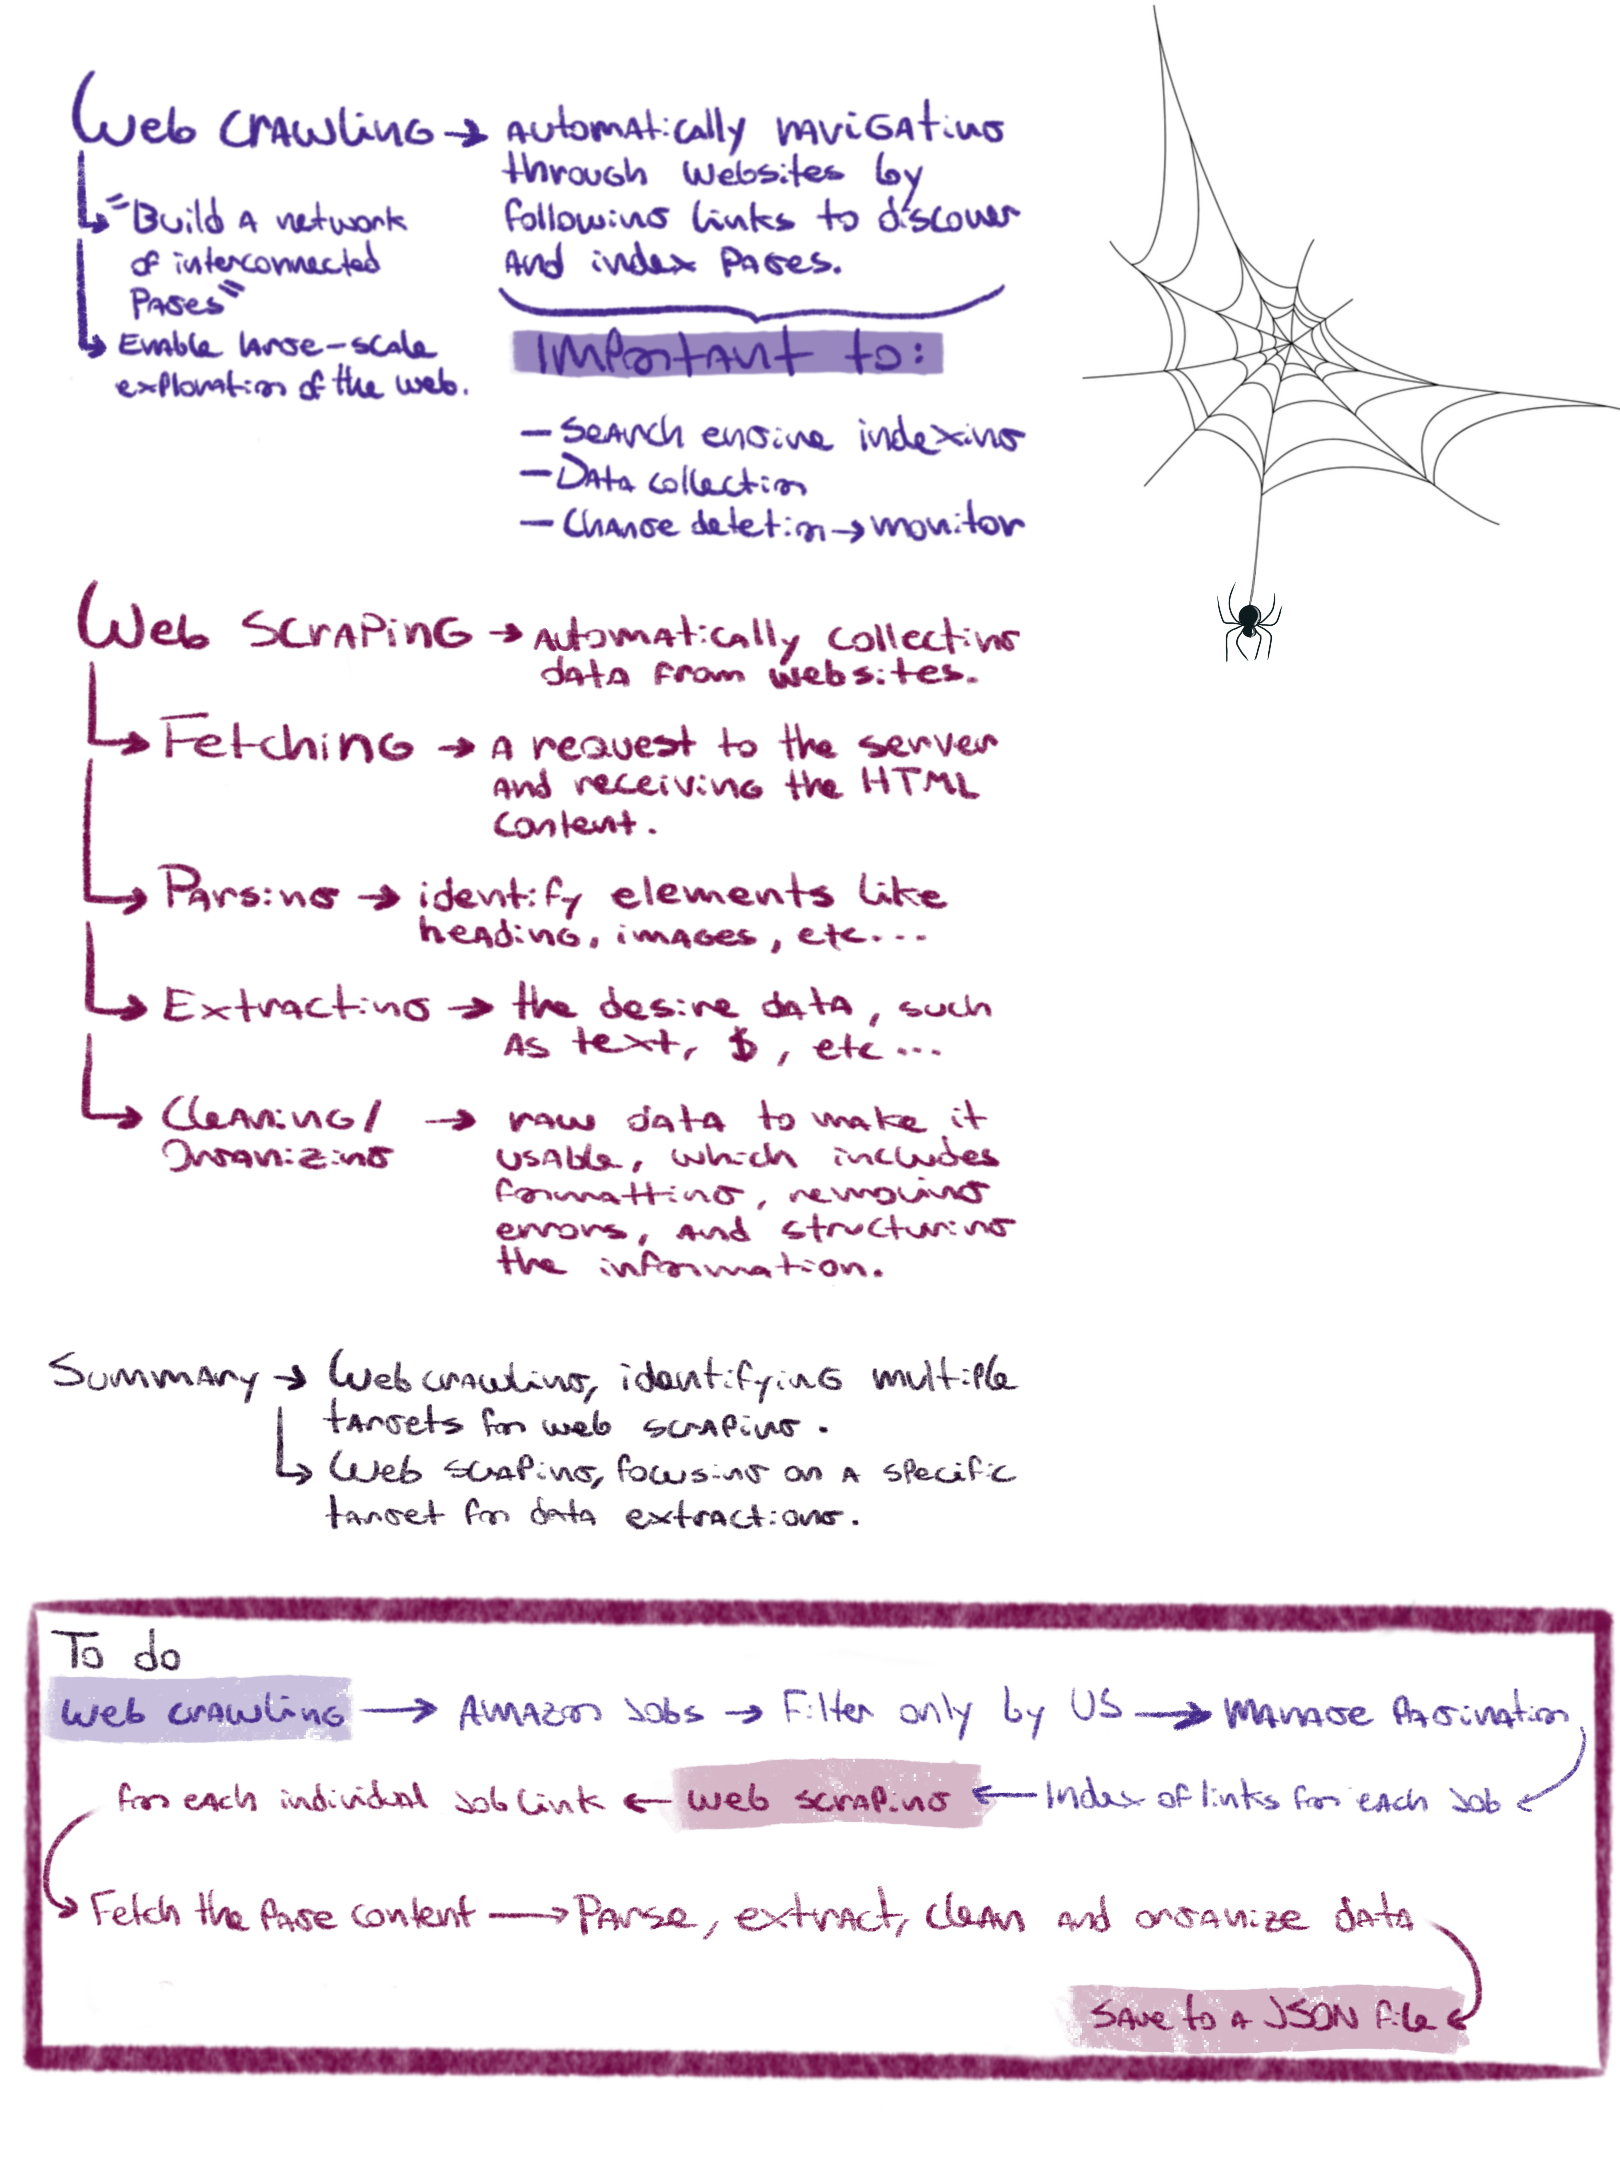 Web Crawling → Automatically navigating
through websites by
following links to discover
and index pages.
"Build a network
of interconnected
pages"
Enable large-scale
exploration of the web.
Important to:
- Search engine indexing
- Data collection
- Change detetion → monitor
Web Scraping → Automatically collecting
data from websites.
Fetching → A request to the server
and receiving the HTML
content.
Parsing → identify elements like
heading, images, etc...
Extracting → the desire data, such
as text, $, etc...
Cleaning/
Organizing
→ raw data to make it
usable, which includes
formatting, removing
errors, and structuring
the information.
Summary → Web crawling, identifying multiple
targets for web scraping.
Web scraping, focusing on a specific
target for data extractions.
To do
Web crawling → Amazon Jobs → Filter only by US → Manage Pagination
for each individual Job Link ← Web scraping ← Index of links for each Job
Fetch the page content → Parse, extract, clean and organize data
Save to a JSON file